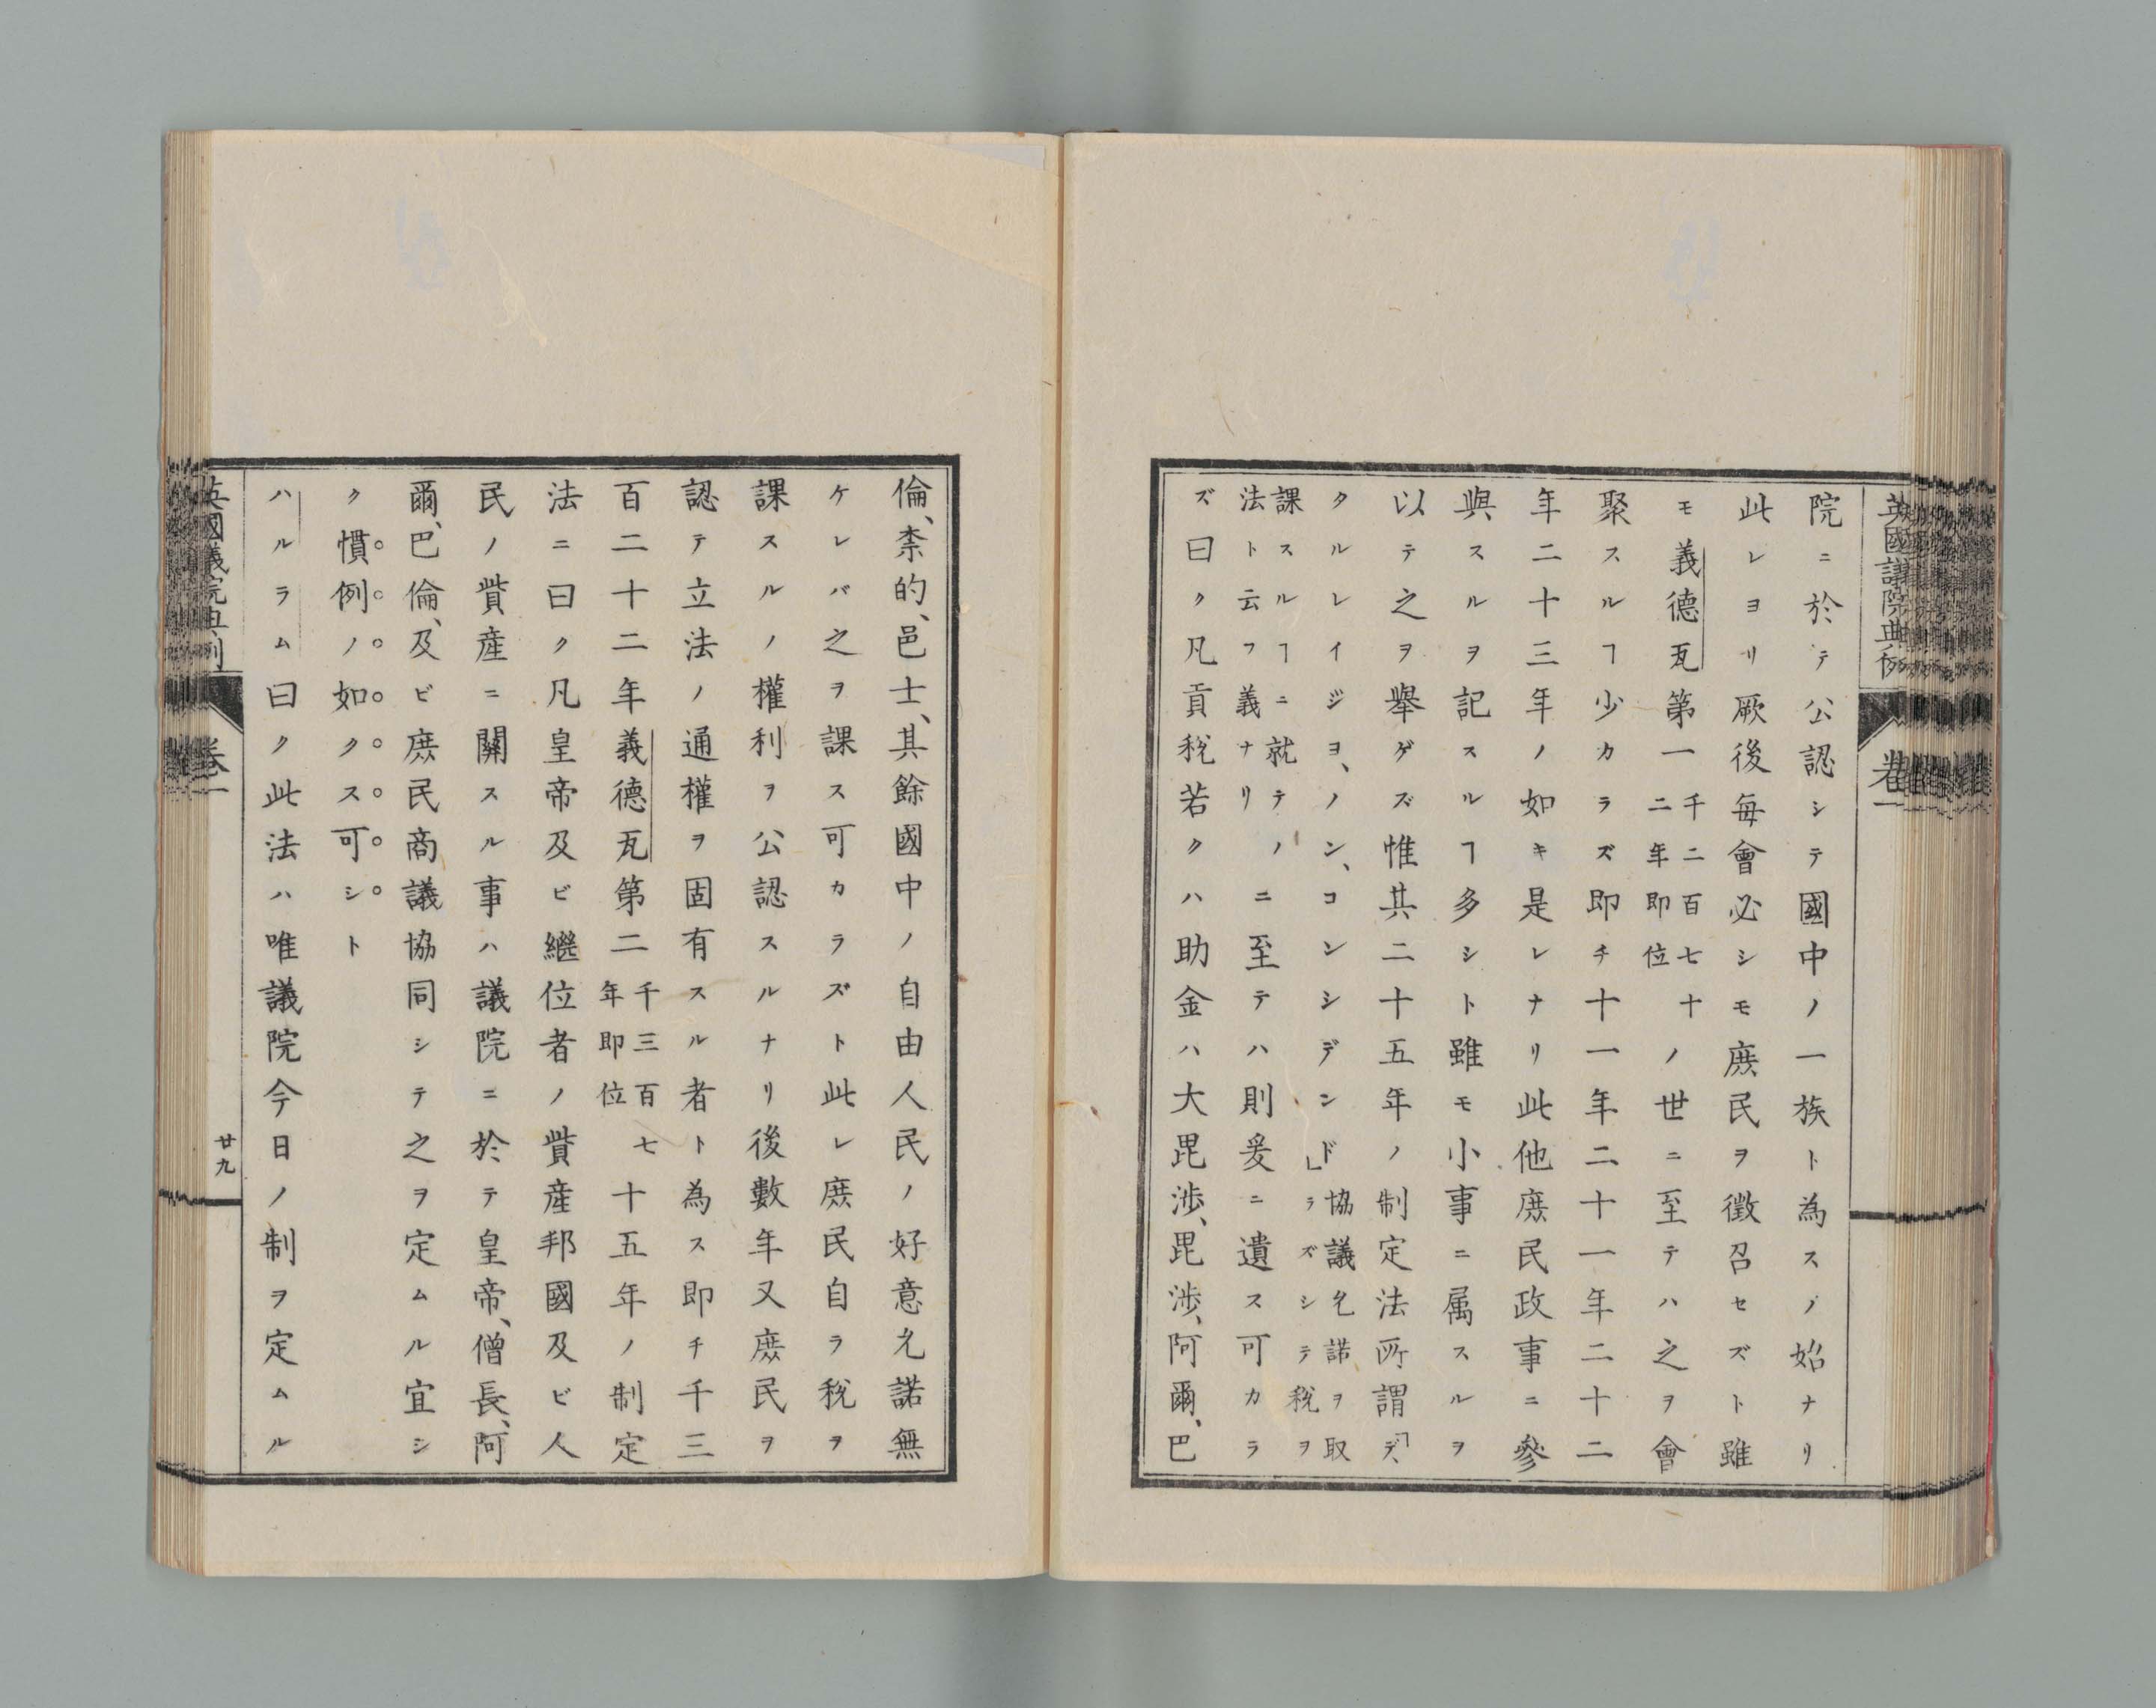 英國議院典例
卷一
院ニ於テ公認シテ國中ノ一族ト為スノ始ナリ
此レヨリ厥後每會必シモ庶民ヲ徵召セズト雖
モ義德瓦第一千二百七十二年即位ノ世ニ至テハ之ヲ會
聚スルヿ少カラズ即チ十一年二十一年二十二
年二十三年ノ如キ是レナリ此他庶民政事ニ參
與スルヲ記スルヿ多シト雖モ小事ニ属スルヲ
以テ之ヲ舉ゲズ惟其二十五年ノ制定法所謂「デ、
クルレイジヨ、ノン、コンシデンド」協議允諾ヲ取ラズシテ稅ヲ
課スルヿニ就テノ法ト云フ義ナリノニ至テハ則爰ニ遺ス可カラ
ズ曰ク凡貢稅若クハ助金ハ大毘涉、毘涉、阿爾、巴
倫、柰的、邑士、其餘國中ノ自由人民ノ好意允諾無
ケレバ之ヲ課ス可カラズト此レ庶民自ラ稅ヲ
課スルノ權利ヲ公認スルナリ後數年又庶民ヲ
認テ立法ノ通權ヲ固有スル者ト為ス即チ千三
百二十二年義德瓦第二千三百七年即位十五年ノ制定
法ニ曰ク凡皇帝及ビ繼位者ノ貲產邦國及ビ人
民ノ貲產ニ關スル事ハ議院ニ於テ皇帝、僧長、阿
爾、巴倫、及ビ庶民商議協同シテ之ヲ定ムル宜シ
ク慣例ノ如クス可シト
ハルラム曰ク此法ハ唯議院今日ノ制ヲ定ムル
英國議院典例
卷一
廿九